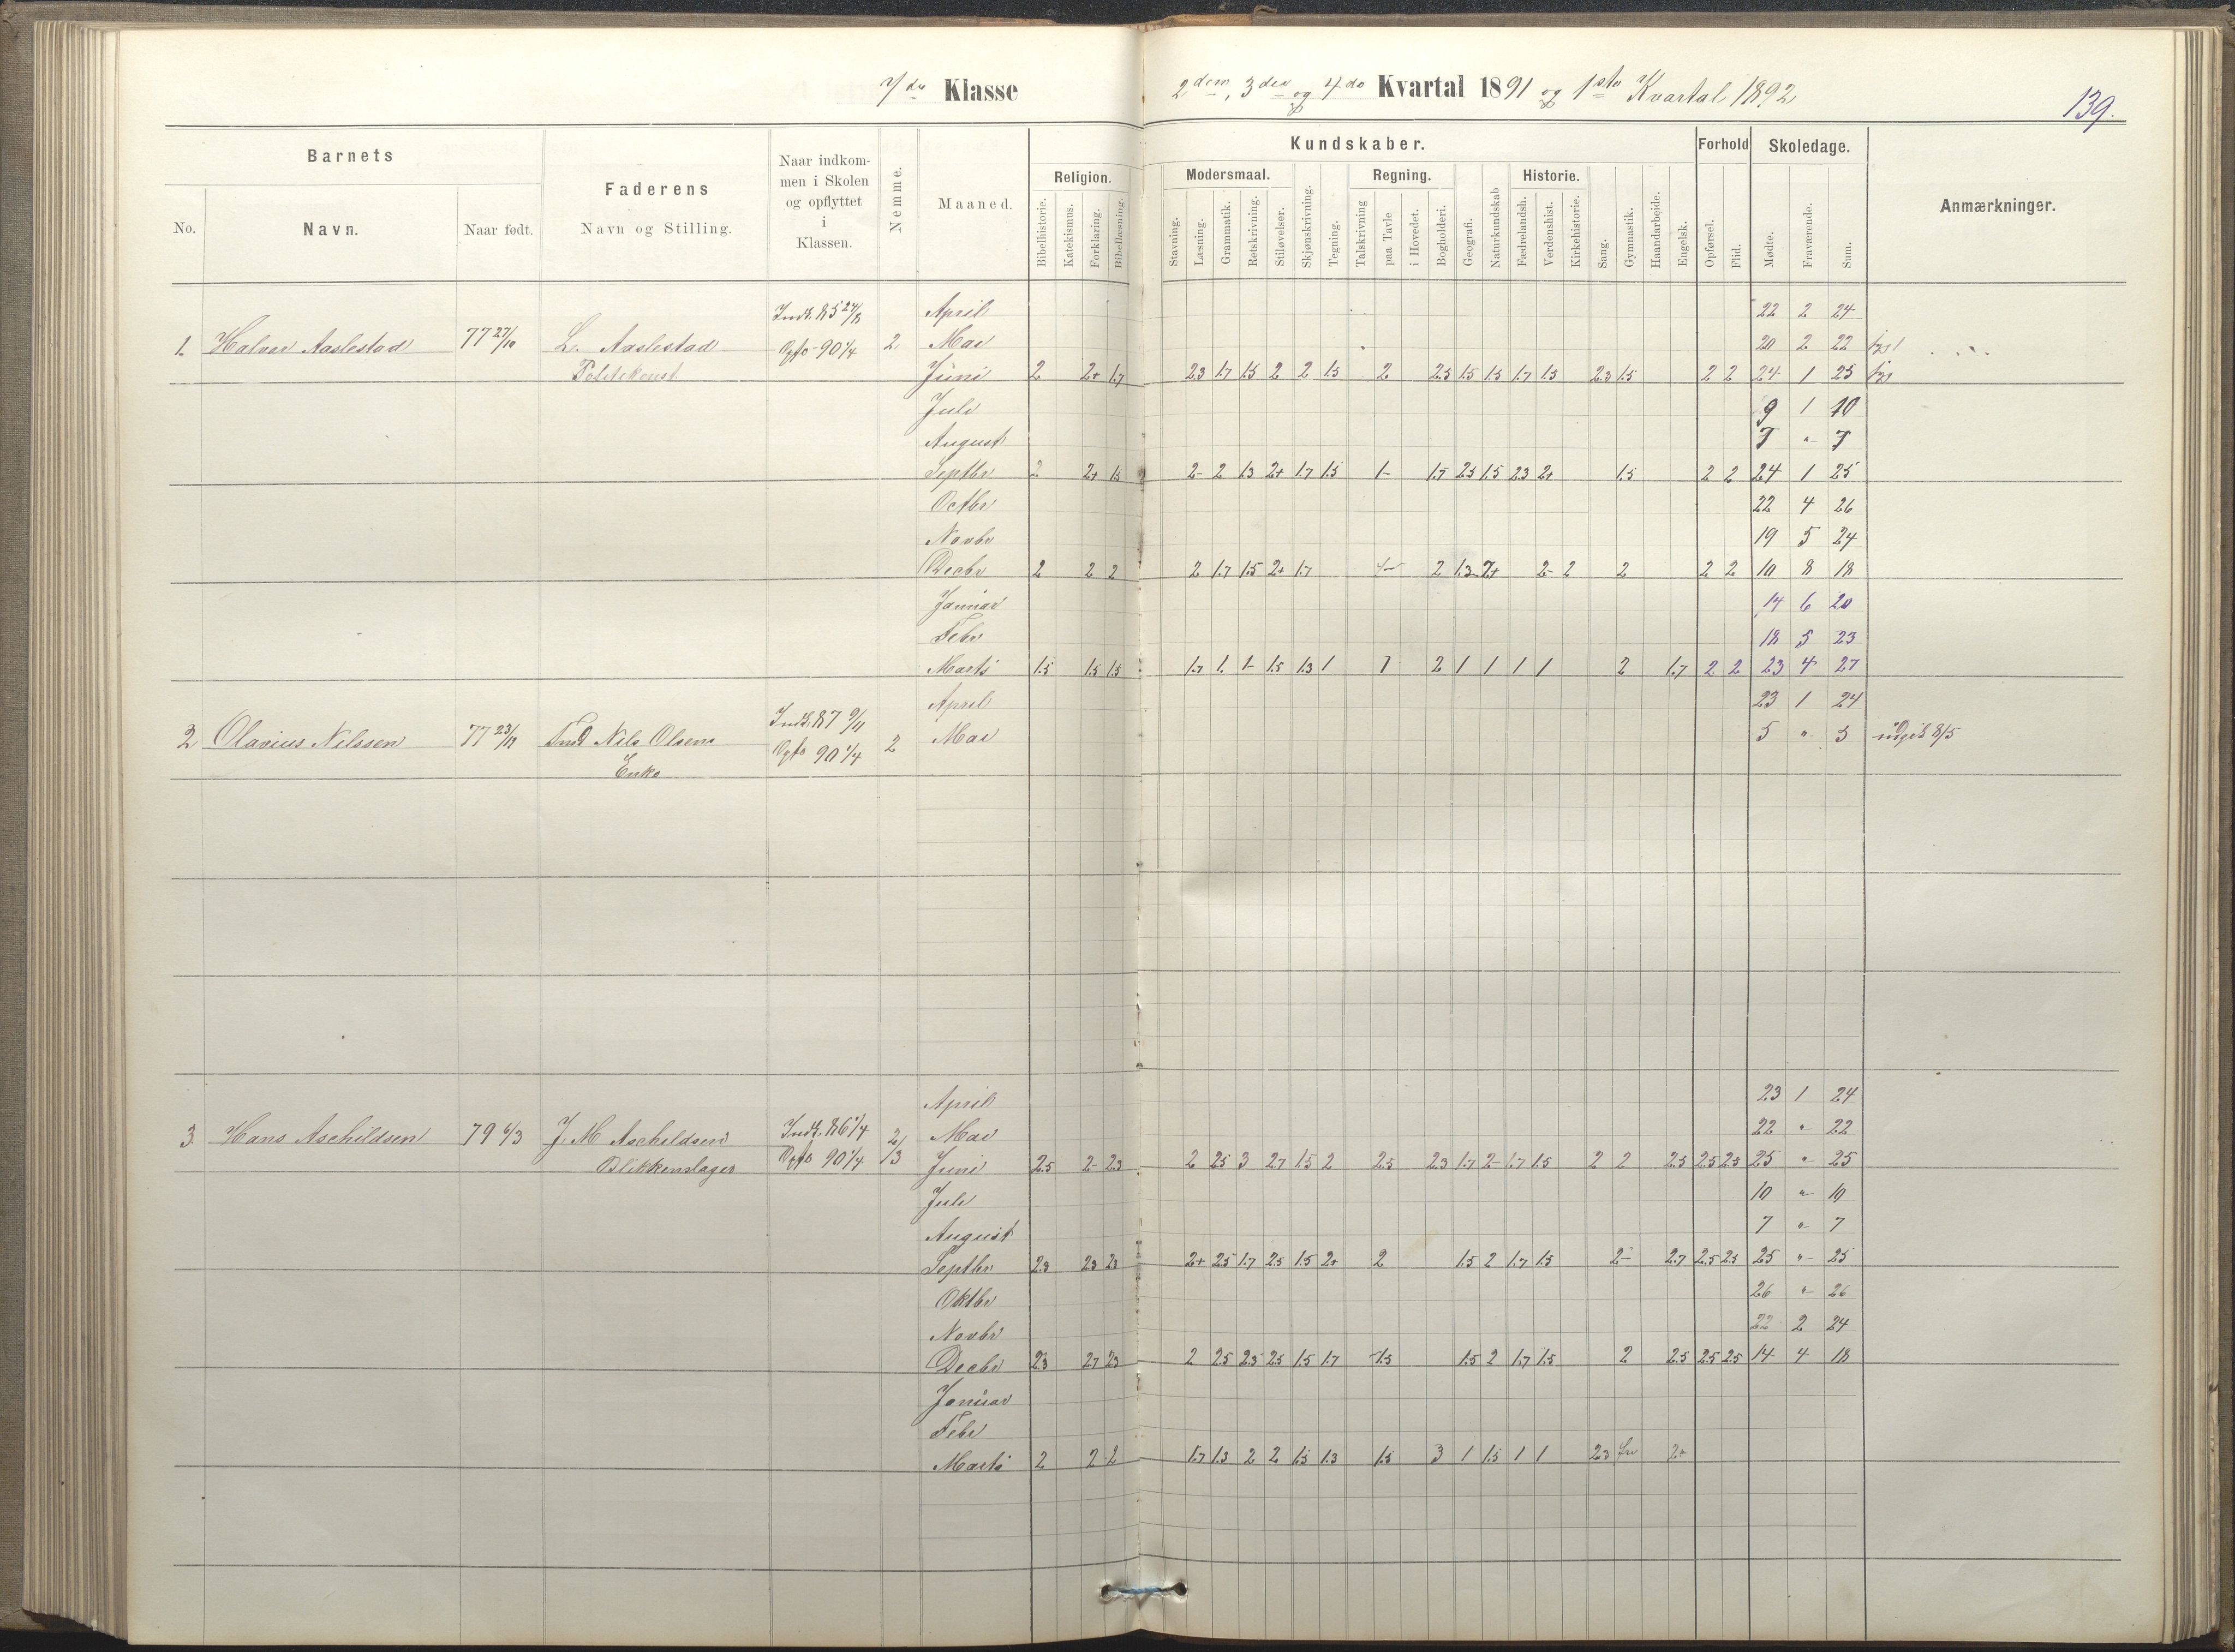 7de Klasse
2den, 3die og 4de Kvartal 1891 og 1ste Kvartal 1892
139.
Barnets
Faderens
Naar indkommen i Skolen og opflyttet i Klassen.
Nemme.
Maaned.
Kundskaber.
Forhold
Skoledage.
Anmærkninger.
No. Navn. Naar født. Navn og Stilling.
Religion. Modersmaal. Regning. Historie.
Bibelhistorie. Katekismus. Forklaring. Bibellæsning. Stavning. Læsning. Grammatik. Retskrivning. Stiløvelser. Skjønskrivning. Tegning. Talskrivning paa Tavle i Hovedet. Bogholderi. Geografi. Naturkundskab Fædrelandsh. Verdenshist. Kirkehistorie. Sang. Gymnastik. Haandarbeide. Engelsk. Opførsel. Flid. Mødte. Fraværende. Sum.
Indk. 85 24/8 April 22 2 24
1. Halvor Aaslestad 77 27/10 L. Aaslestad Opfl. 90 1/4 2 Mai 20 2 22
Politikonst. Juni 2 2+ 1.7 2.3 1.7 1.5 2 2 1.5 2 2.5 1.5 1.5 1.7 1.5 2.3 1.5 2 2 24 1 25
Juli 9 1 10
August 7 " 7
Septbr 2 2+ 1.5 2- 2 1.3 2+ 1.7 1.5 1- 1.7 2.5 1.5 2.3 2+ 1.5 2 2 24 1 25
Octbr 22 4 26
Novbr 19 5 24
Decbr 2 2 2 2 1.7 1.5 2+ 1.7 2 1.3 2+ 2- 2 2 2 2 10 8 18
Januar 14 6 20
Febr 18 5 23
Marts 1.5 1.5 1.5 1.7 1. 1- 1.5 1.3 1 1 2 1 1 1 1 2 1.7 2 2 23 4 27
April 23 1 24
2 Olavius Nilssen 77 Nils Olsens Indk. 87 9/11 Opfl 90 1/4 2 Mai 5 " 5 udgik 8/5
Enke
April 23 1 24
3 Hans Aschildsen 79 6/3 J. M Aschildsen Indk. 86 1/4 2/3 Mai 22 " 22
Blikkenslager Opfl 90 1/4 Juni 2.5 2- 2.3 2 2.5 3 2.7 1.5 2 2.5 2.3 1.7 2- 1.7 1.5 2 2 2.5 2.5 2.5 25 " 25
Juli 10 " 10
August 7 " 7
Septbr 2.3 2.3 2.3 2+ 2.5 1.7 2.5 1.5 2+ 2 1.5 2 1.7 1.5 2- 2.7 2.5 2.5 25 " 25
Oktbr 26 " 26
Novbr 22 2 24
Decbr 2.3 2.7 2.3 2 2.5 2.3 2.5 1.5 1.7 1.5 1.5 2 1.7 1.5 2 2.5 2.5 2.5 14 4 18
Januar
Febr
Marts 2 2 2 1.7 1.3 2 2 1.5 1.3 1.5 3 1 1.5 1 1 2.3 fri 2+